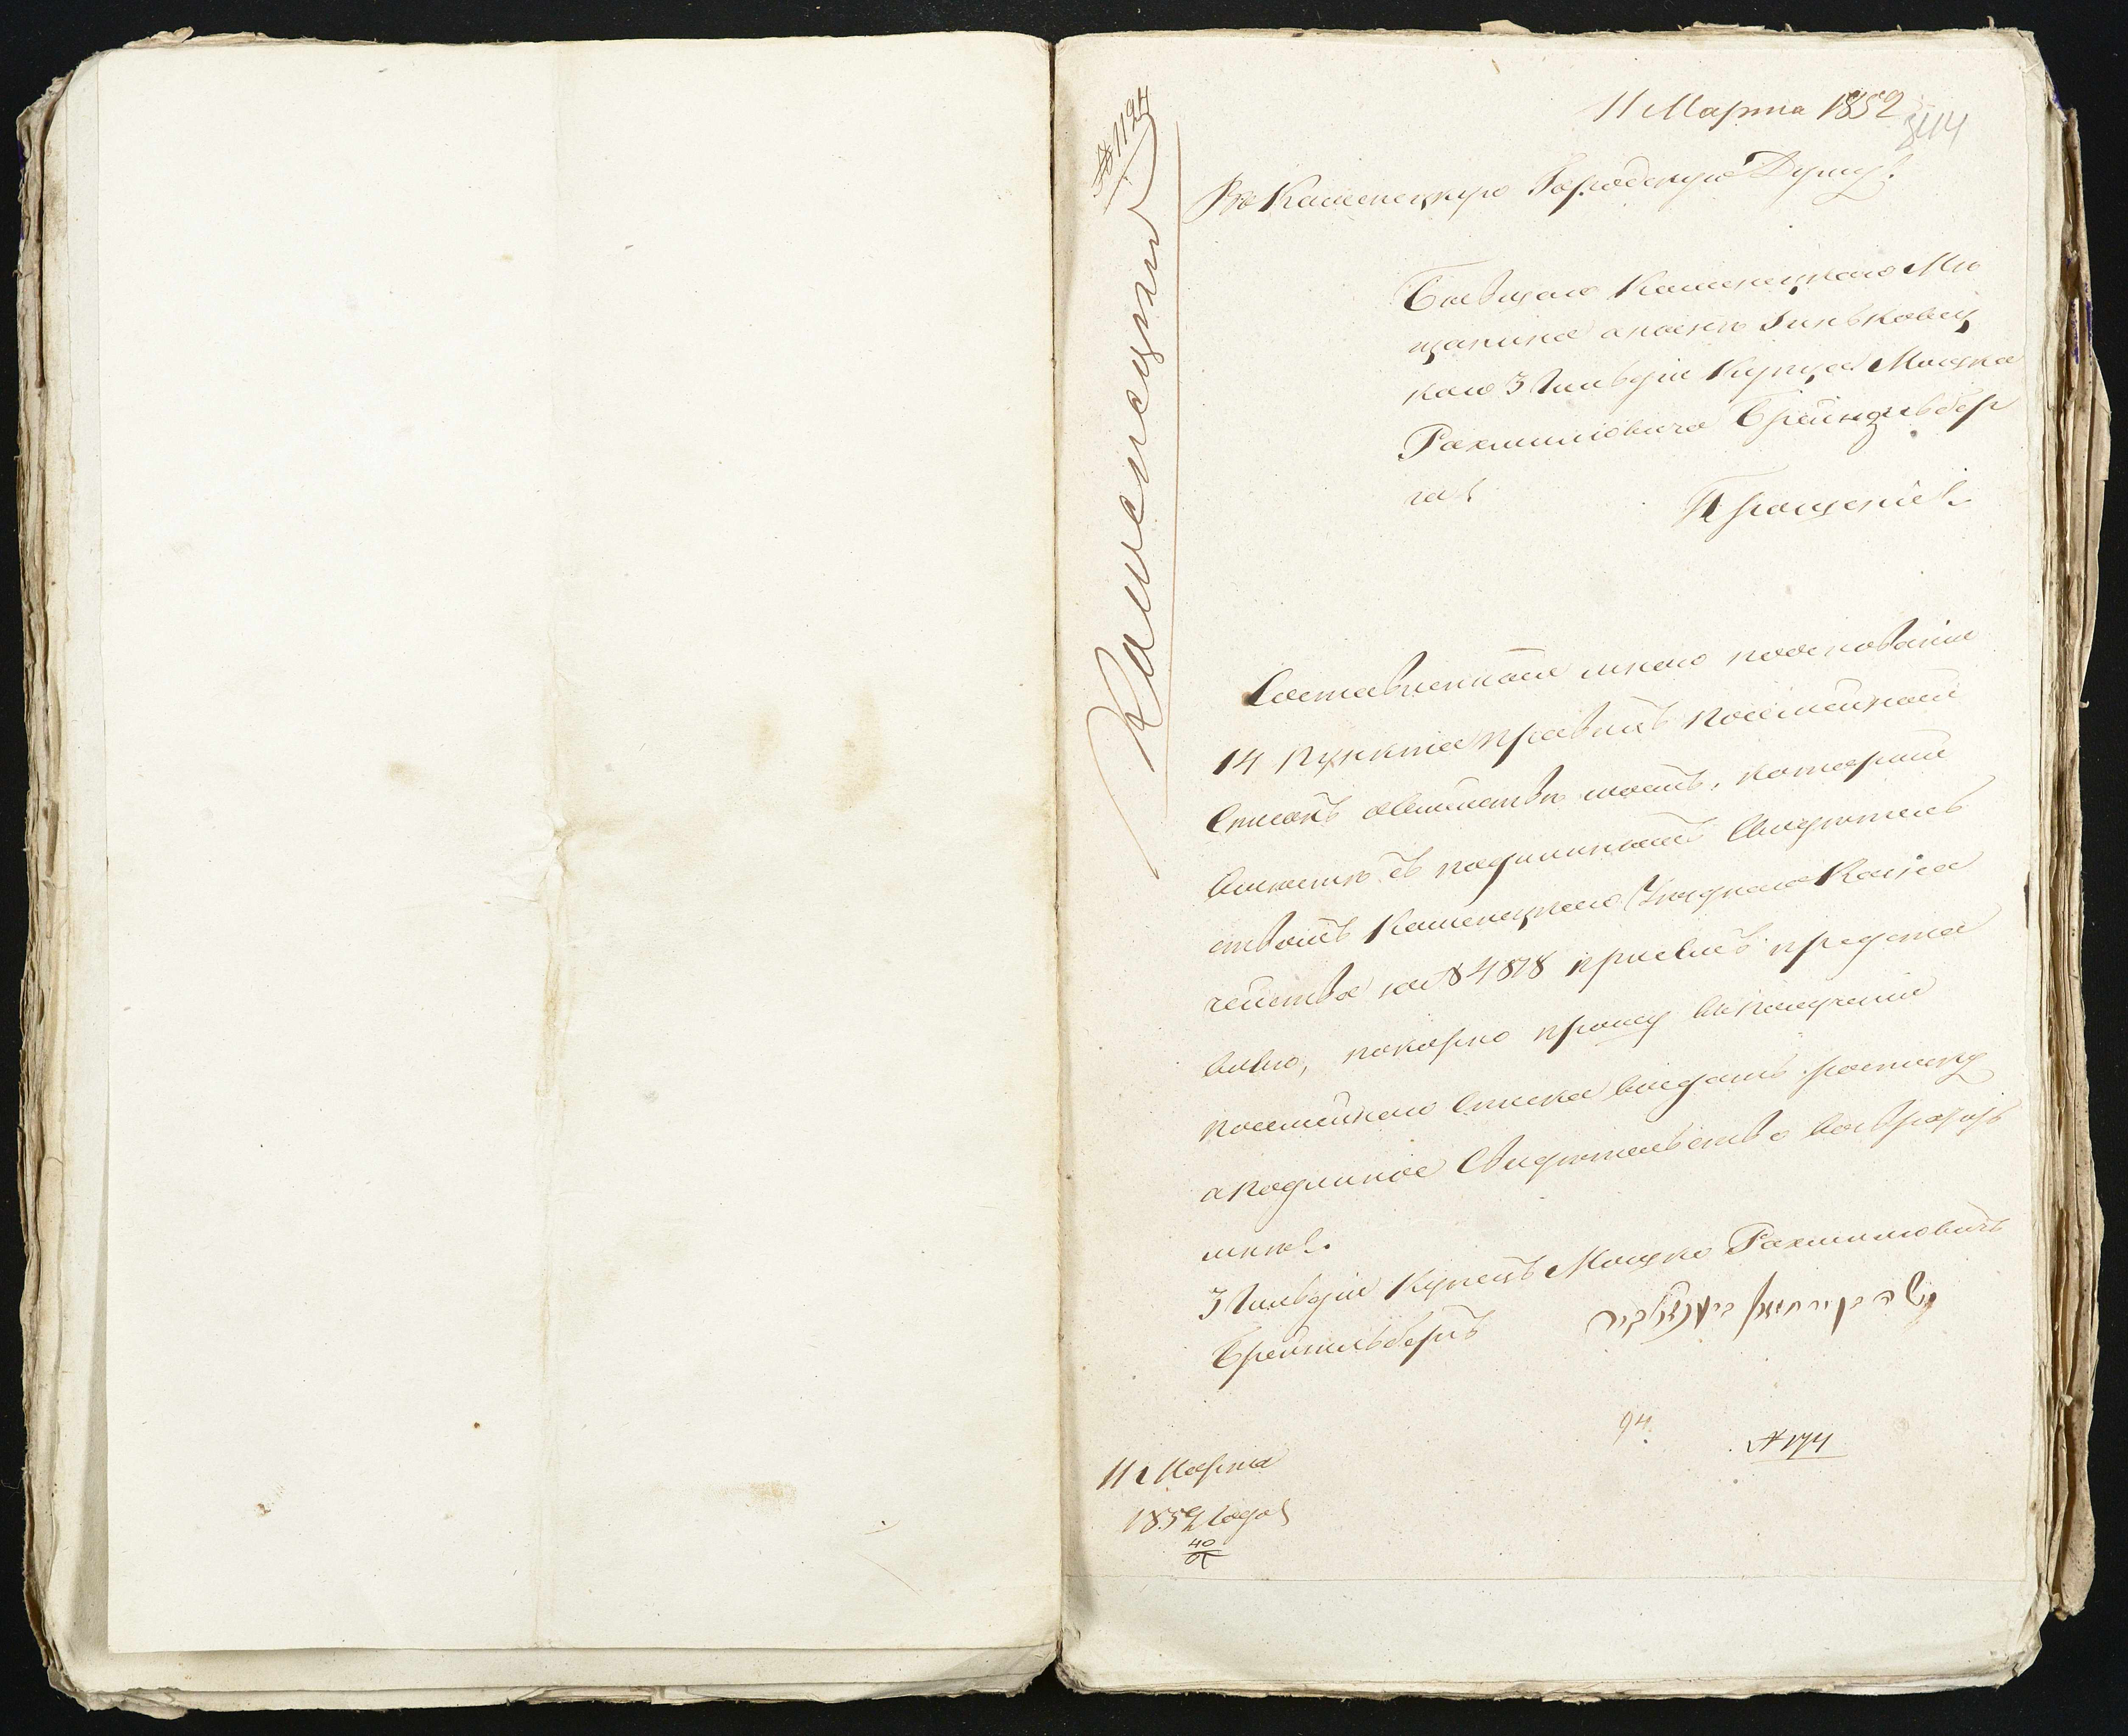 11 Марта 1852
344
№ 1194
Каменецкiй
Въ Каменецкую Городскую Думу.
Бывшаго Каменецкаго Мѣ
щанина а нынѣ Зиньковец
каго 3 Гильдiи Купца Мошка
Рахмиловича Брейнзильбер
га
Прошенiе
Составленный мною на основанiи
14 Пункта правилъ посемейный
Списокъ о семействѣ моемъ, который
вмѣстѣ съ подлиннымъ Свидетель
ствомъ Каменецкаго Уѣзднаго Казна
чейства за № 4818 при семъ предста
вляю, покорно прошу въ полученiи
посемейнаго Списка выдать росписку
а подлинное Свидетельство возвратить
мнѣ.
3 Гильдiи Купецъ Мошко Рахмиловичъ
Брейзильбергъ
94
№ 174
11 Марта
1852 Года
40